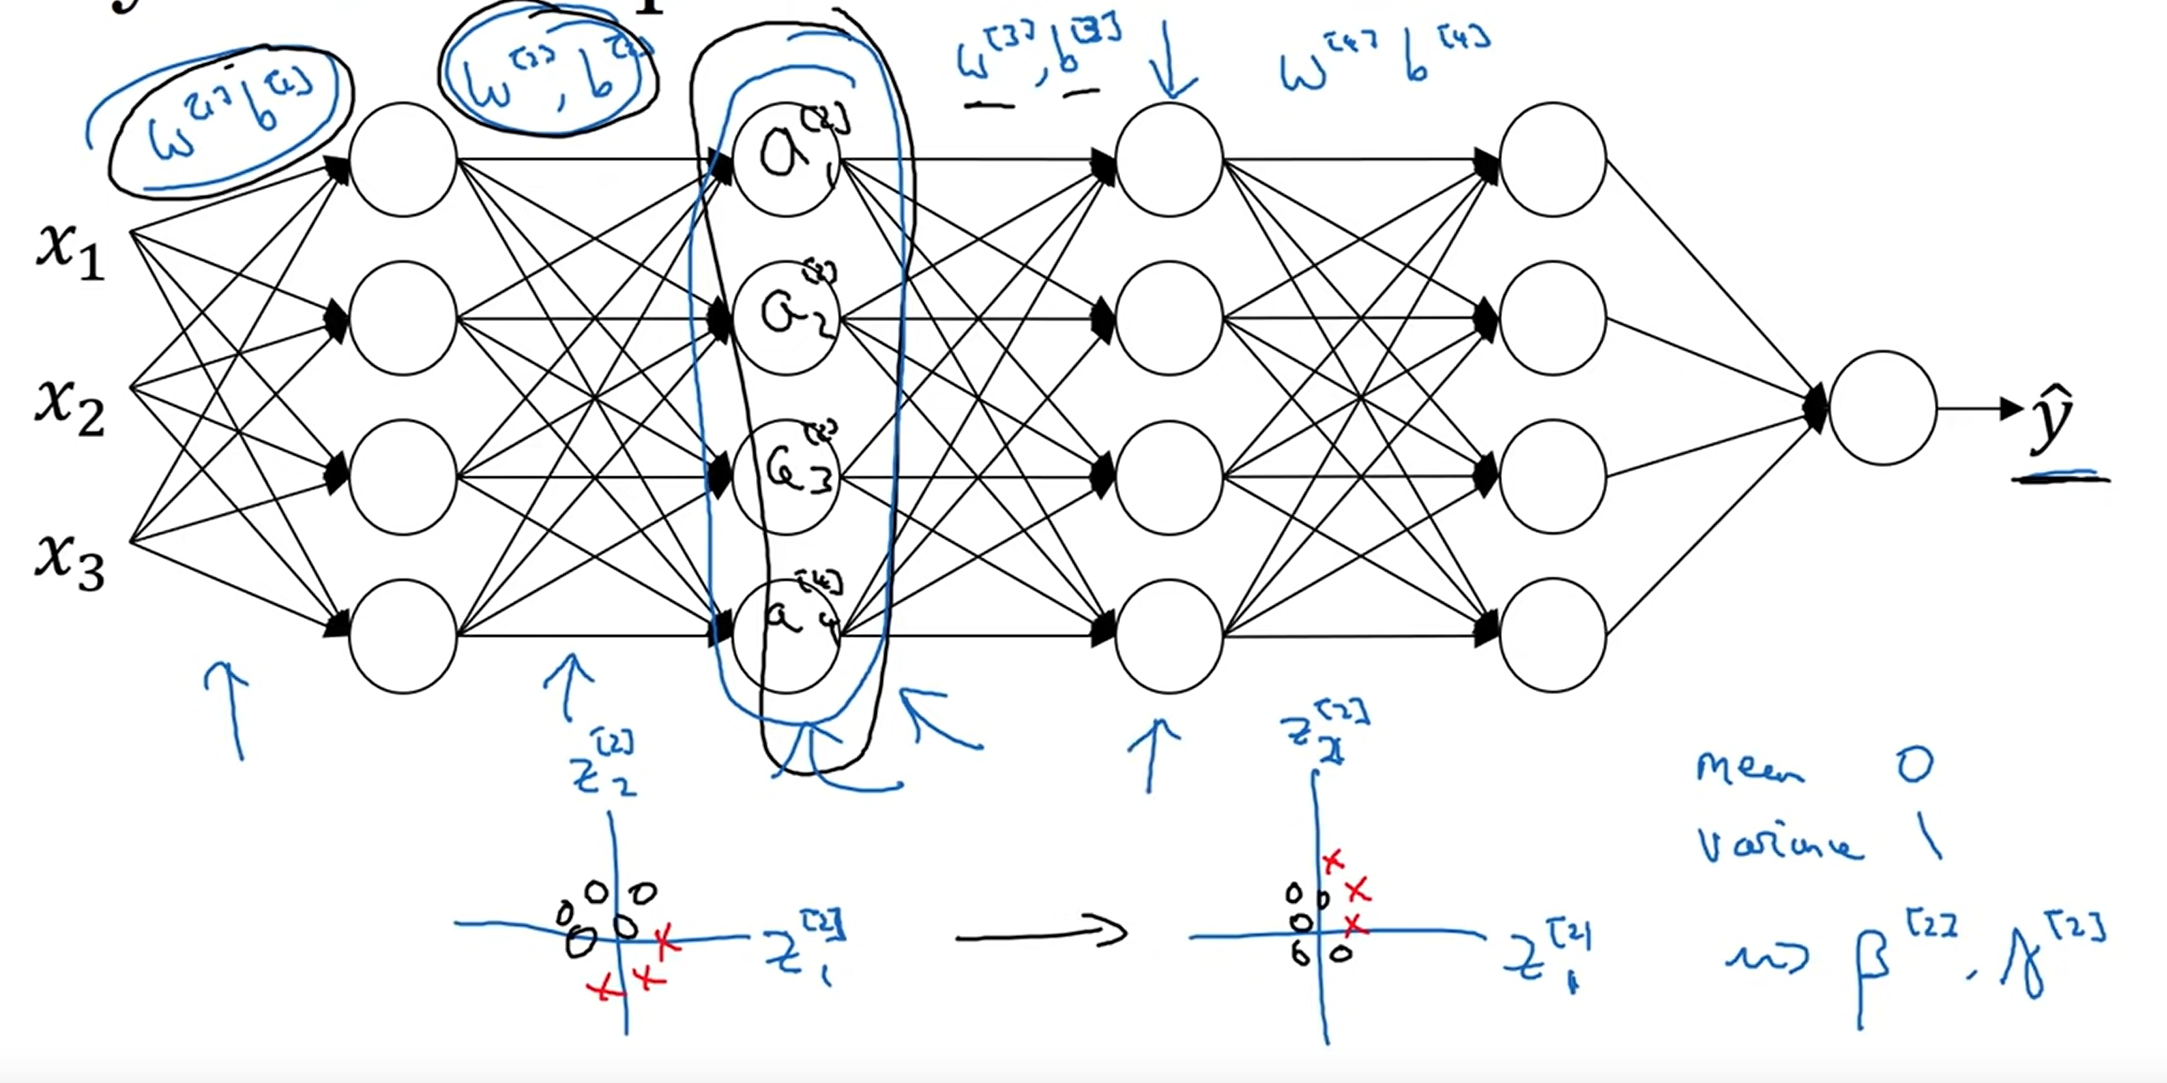 w^[1] b^[1]
w^[2], b^[2]
w^[3], b^[3]
w^[4] b^[4]
x₁
x₂
x₃
a₁^[2]
a₂^[2]
a₃^[2]
a₄^[4]
ŷ
z₂^[2]
z₁^[2]
z₂^[2]
z₁^[2]
mean 0
variance 1
β^[2], γ^[2]